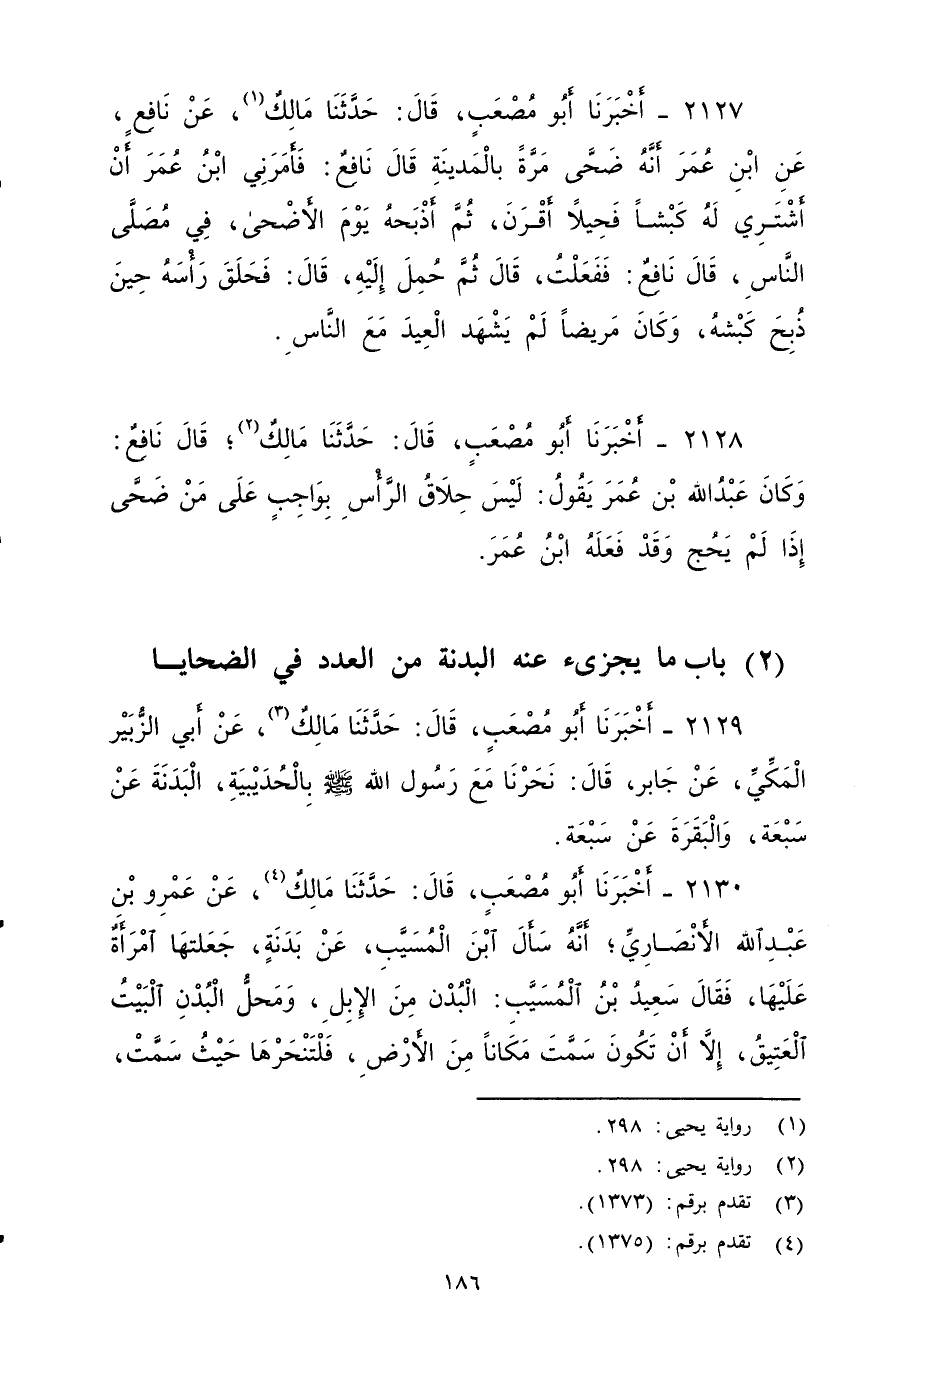 ٢١٢٧ ـ أَخْبَرَنَا أَبُو مُصْعَبٍ، قَالَ: حَدَّثَنَا مَالِكٌ(١)، عَنْ نَافِعٍ،
عَنِ ابْنِ عُمَرَ أَنَّهُ ضَحَّى مَرَّةً بالْمَدينَةِ قَالَ نَافِعٌ: فَأَمَرَنِي ابْنُ عُمَرَ أَنْ
أَشْتَرِي لَهُ كَبْشاً فَحِيلًا أَقْرَنَ، ثُمَّ أَذْبَحهُ يَوْمَ الأَضْحىٰ، فِي مُصَلَّى
النَّاسِ، قَالَ نَافِعٌ: فَفَعَلْتُ، قَالَ ثُمَّ حُمِلَ إِلَيْهِ، قَالَ: فَحَلَقَ رَأْسَهُ حِينَ
ذُبِحَ كَبْشهُ، وَكَانَ مَريضاً لَمْ يَشْهَد الْعِيدَ مَعَ النَّاسِ.
٢١٢٨ ـ أَخْبَرَنَا أَبُو مُصْعَبٍ، قَالَ: حَدَّثَنَا مَالِكٌ(٢)؛ قَالَ نَافِعٌ:
وَكَانَ عَبْدُالله بْن عُمَرَ يَقُولُ: لَيْسَ حِلَاقُ الرَّأْسِ بِوَاجِبٍ عَلَى مَنْ ضَحَّى
إِذَا لَمْ يَحُج وَقَدْ فَعَلَهُ ابْنُ عُمَرَ.
(٢) باب ما يجزىء عنه البدنة من العدد في الضحايا
٢١٢٩ ـ أَخْبَرَنَا أَبُو مُصْعَبٍ، قَالَ: حَدَّثَنَا مَالِكٌ(٣)، عَنْ أَبي الزُّبَيْر
الْمَكِّيِّ، عَنْ جَابر، قَالَ: نَحَرْنَا مَعَ رَسُول الله ﷺ بِالْحُدَيْبِيَةِ، الْبَدَنَةَ عَنْ
سَبْعَة، وَالْبَقَرَةَ عَنْ سَبْعَة.
٢١٣٠ ـ أَخْبَرَنَا أَبُو مُصْعَبٍ، قَالَ: حَدَّثَنَا مَالكٌ(٤)، عَنْ عَمْرو بْن
عَبْدِٱلله الأَنْصَارِيِّ؛ أَنَّهُ سَأَلَ ٱبْنَ الْمُسَيَّبِ، عَنْ بَدَنَةٍ، جَعَلتهَا ٱمْرَأَةٌ
عَلَيْهَا، فَقَالَ سَعِيدُ بْنُ ٱلْمُسَيَّبِ: الْبُدْن مِنَ الإِبِلِ، وَمَحلُّ الْبُدْنِ ٱلْبَيْتُ
ٱلْعَتِيقُ، إِلَّا أَنْ تَكُونَ سَمَّتَ مَكَاناً مِنَ الأَرْضِ، فَلْتَنْحَرْهَا حَيْثُ سَمَّتْ،
(١) رواية يحيى: ٢٩٨.
(٢) رواية يحيى: ٢٩٨.
(٣) تقدم برقم: (١٣٧٣).
(٤) تقدم برقم: (١٣٧٥).
١٨٦